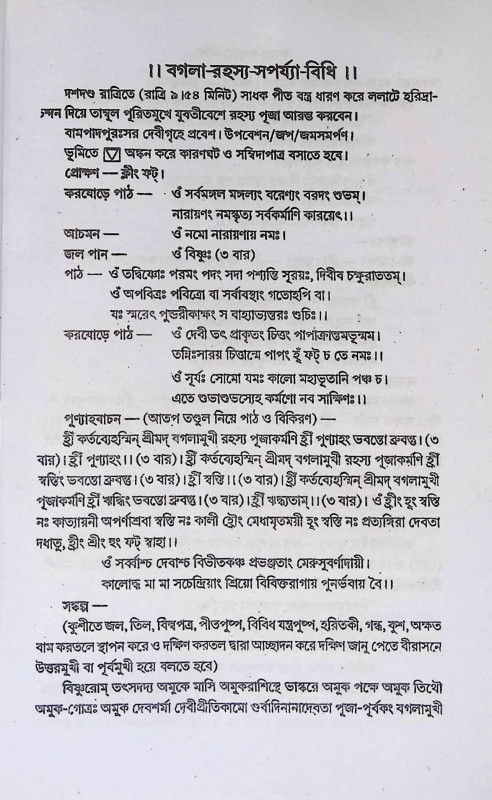 ।। বগলা-রহস্য-সপর্য্যা-বিধি ।।
দশদণ্ড রাত্রিতে (রাত্রি ৯।৫৪ মিনিট) সাধক পীত বস্ত্র ধারণ করে ললাটে হরিদ্রা-
চন্দন দিয়ে তাম্বুল পুরিতমুখে যুবতীবেশে রহস্য পূজা আরম্ভ করবেন।
বামপাদপুরঃসর দেবীগৃহে প্রবেশ। উপবেশন/জপ/জমসমর্পণ।
ভূমিতে অঙ্কন করে কারণঘট ও সম্বিদাপাত্র বসাতে হবে।
প্রোক্ষণ — হ্লীং ফট্।
করযোড়ে পাঠ — ওঁ সর্বমঙ্গল মঙ্গল্যং বরেণ্যং বরদং শুভম্।
নারায়ণং নমস্কৃত্য সর্বকর্মাণি কারয়েৎ।।
আচমন — ওঁ নমো নারায়ণায় নমঃ।
জল পান — ওঁ বিষ্ণুঃ (৩ বার)
পাঠ — ওঁ তদ্বিষ্ণোঃ পরমং পদং সদা পশ্যন্তি সূরয়ঃ, দিবীব চক্ষুরাততম্।
ওঁ অপবিত্রঃ পবিত্রো বা সর্বাবস্থাং গতোহপি বা।
যঃ স্মরেৎ পুন্ডরীকাক্ষং স বাহ্যাভ্যন্তরঃ শুচিঃ।।
করযোড়ে পাঠ — ওঁ দেবী তৎ প্রাকৃতং চিত্তং পাপাক্রান্তমভূন্মম।
তন্নিঃসারয় চিত্তান্মে পাপং হূঁ ফট্ চ তে নমঃ।।
ওঁ সূর্যঃ সোমো যমঃ কালো মহাভূতানি পঞ্চ চ।
এতে শুভাশুভস্যেহ কর্মণো নব সাক্ষিণঃ।।
পুণ্যাহবাচন — (আতপ তণ্ডুল নিয়ে পাঠ ও বিকিরণ) —
হ্রীঁ কর্তব্যেহস্মিন্ শ্রীমদ্ বগলামুখী রহস্য পূজাকর্মণি হ্রীঁ পুণ্যাহং ভবন্তো ব্রুবন্তু। (৩
বার)। হ্রীঁ পুণ্যাহং।। (৩ বার)। হ্রীঁ কর্তব্যেহস্মিন্ শ্রীমদ্ বগলামুখী রহস্য পূজাকর্মণি হ্রীঁ
স্বস্তিং ভবন্তো ব্রুবন্তু। (৩ বার)। হ্রীঁ স্বস্তি।। (৩ বার)। হ্রীঁ কর্তব্যেহস্মিন্ শ্রীমদ্ বগলামুখী
পূজাকর্মণি হ্রীঁ ঋদ্ধিং ভবন্তো ব্রুবন্তু। (৩ বার)। হ্রীঁ ঋদ্ধ্যতাম্।। (৩ বার)। ওঁ হ্লীং হূং স্বস্তি
নঃ কাত্যায়নী অপর্ণাশ্রবা স্বস্তি নঃ কালী হ্রৌং মেধামৃতময়ী হূং স্বস্তি নঃ প্রত্যঙ্গিরা দেবতা
দধাতু, হ্লীং শ্রীং হুং ফট্ স্বাহা।।
ওঁ সর্ব্বাশ্চ দেবাশ্চ বিভীতকঞ্চ প্রভঞ্জতাং মেরুসুবর্ণদায়ী।
কালোদ্ধ মা মা সচেন্দ্রিয়াং শ্রিয়ো বিবিক্তরাগায় পুনর্ভবায় বৈ।।
সঙ্কল্প —
(কুশীতে জল, তিল, বিল্বপত্র, পীতপুষ্প, বিবিধ যন্ত্রপুষ্প, হরিতকী, গন্ধ, কুশ, অক্ষত
বাম করতলে স্থাপন করে ও দক্ষিণ করতল দ্বারা আচ্ছাদন করে দক্ষিণ জানু পেতে বীরাসনে
উত্তরমুখী বা পূর্বমুখী হয়ে বলতে হবে)
বিষ্ণুরোম্ তৎসদদ্য অমুকে মাসি অমুকরাশিস্থে ভাস্করে অমুক পক্ষে অমুক তিথৌ
অমুক-গোত্রঃ অমুক দেবশর্মা দেবীপ্রীতিকামো গুর্বাদিনানাদেবতা পূজা-পূর্বকং বগলামুখী